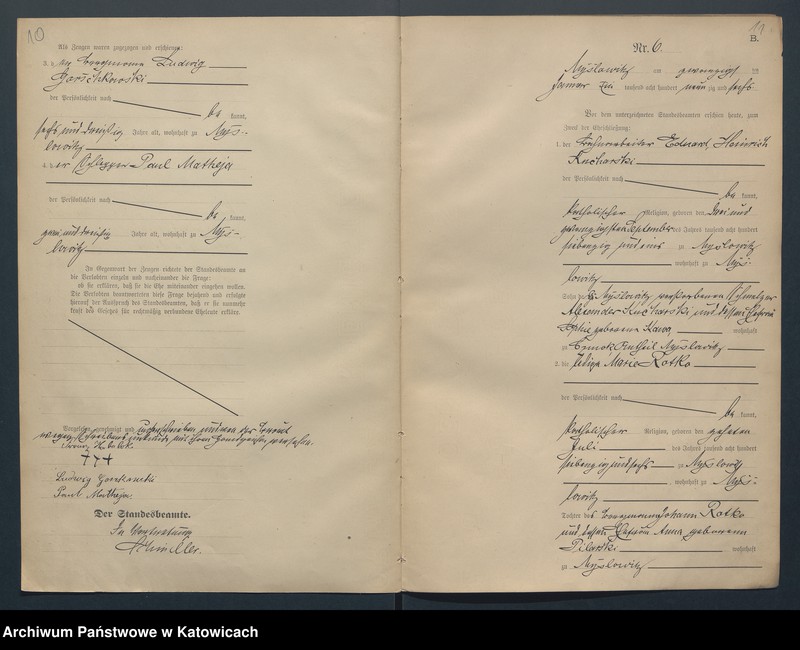 10
Als Zeugen waren zugezogen und erschienen:
3. der Bergmann Ludwig
Gorzelkowski
der Persönlichkeit nach
be kannt,
sechs und dreißig Jahre alt, wohnhaft zu Mys-
lowitz
4. der Schlepper Paul Matheja
der Persönlichkeit nach
be kannt,
zwei und dreißig Jahre alt, wohnhaft zu Mys-
lowitz
In Gegenwart der Zeugen richtete der Standesbeamte an
die Verlobten einzeln und nacheinander die Frage:
ob sie erklären, daß sie die Ehe miteinander eingehen wollen.
Die Verlobten beantworteten diese Frage bejahend und erfolgte
hierauf der Ausspruch des Standesbeamten, daß er sie nunmehr
kraft des Gesetzes für rechtmäßig verbundene Eheleute erkläre.
Vorgelesen, genehmigt und unterschrieben und von der Braut
wegen Schreibensunkunde mit ihrem Handzeichen versehen.
+++
Ludwig
Paul Matheja
Der Standesbeamte.
In Vertretung
Schmiller.
11.
B.
Nr. 6.
Myslowitz am zwanzigsten
Januar tausend acht hundert neunzig und sechs
Vor dem unterzeichneten Standesbeamten erschien heute, zum
Zweck der Eheschließung:
1. der Eduard Heinrich
Kucharski
der Persönlichkeit nach
be kannt,
katholischer Religion, geboren den drei und
zwanzigsten September des Jahres tausend acht hundert
siebenzig und eins zu Myslowitz
wohnhaft zu Mys-
lowitz
Sohn des zu Myslowitz verstorbenen Schmelzer
Alexander Kucharski und dessen Ehefrau
Sophie geborene Kawa, wohnhaft
zu Antheil Myslowitz
2. die ledige Marie Rotko
der Persönlichkeit nach
be kannt,
katholischer Religion, geboren den zehnten
Juli des Jahres tausend acht hundert
siebenzig und sechs zu Myslowitz
wohnhaft zu Mys-
lowitz
Tochter des Bergmann Johann Rotko
und dessen Ehefrau Anna, geborenen
Pilarski wohnhaft
zu Myslowitz
Archiwum Państwowe w Katowicach